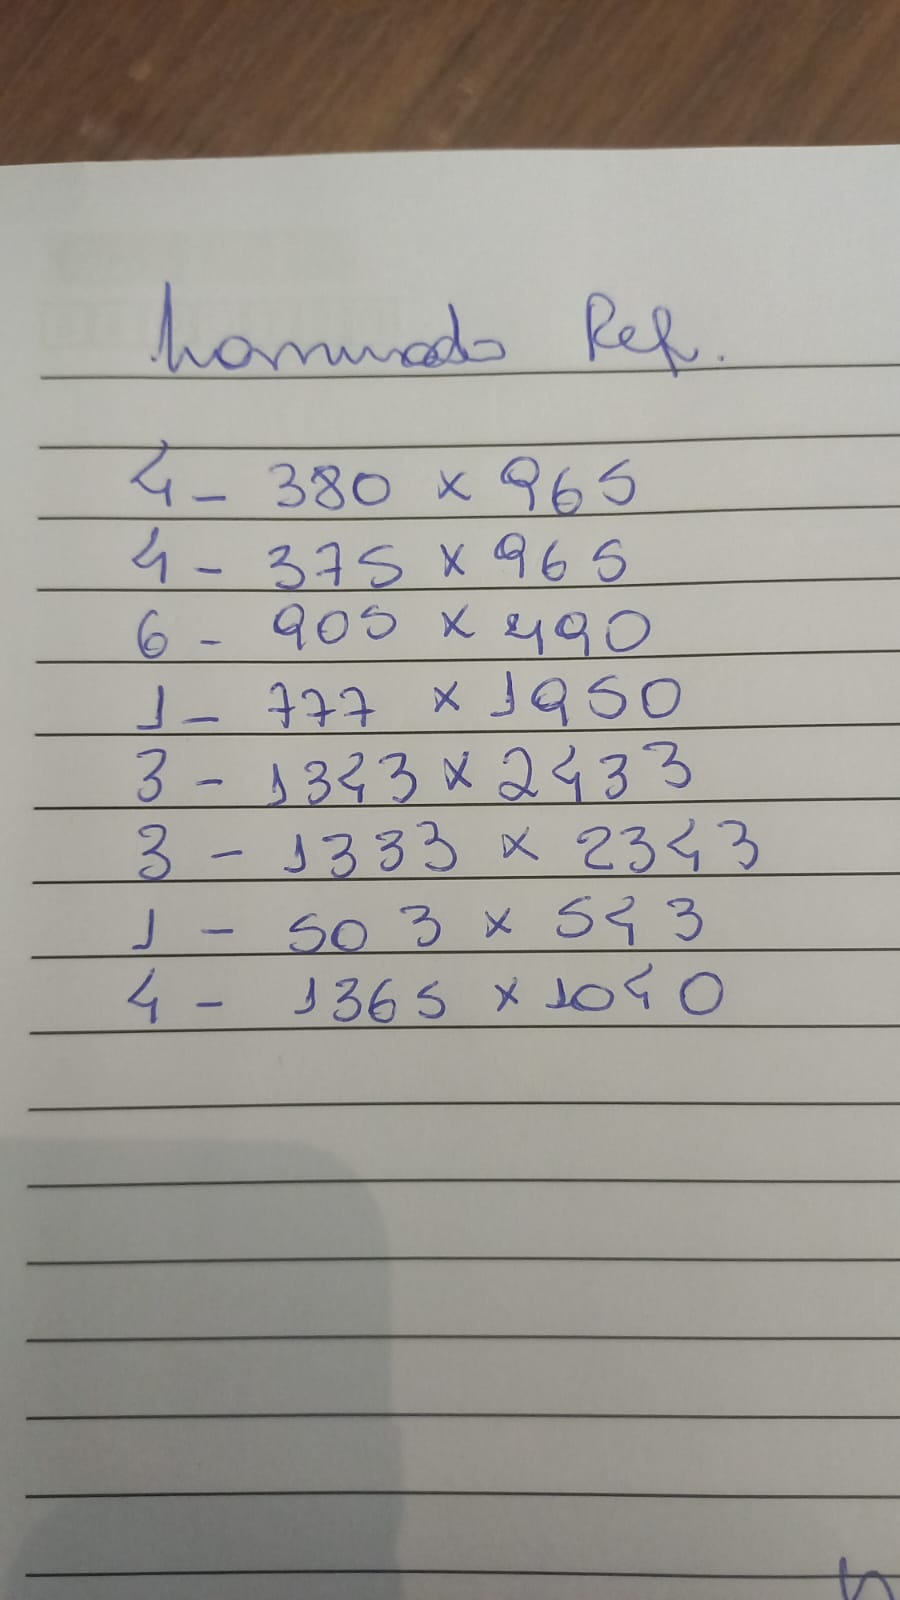 Laminado Ref.
4 - 380 x 965
4 - 375 x 965
6 - 905 x 490
1 - 777 x 1950
3 - 1343 x 2433
3 - 1333 x 2343
1 - 503 x 543
4 - 1365 x 1040